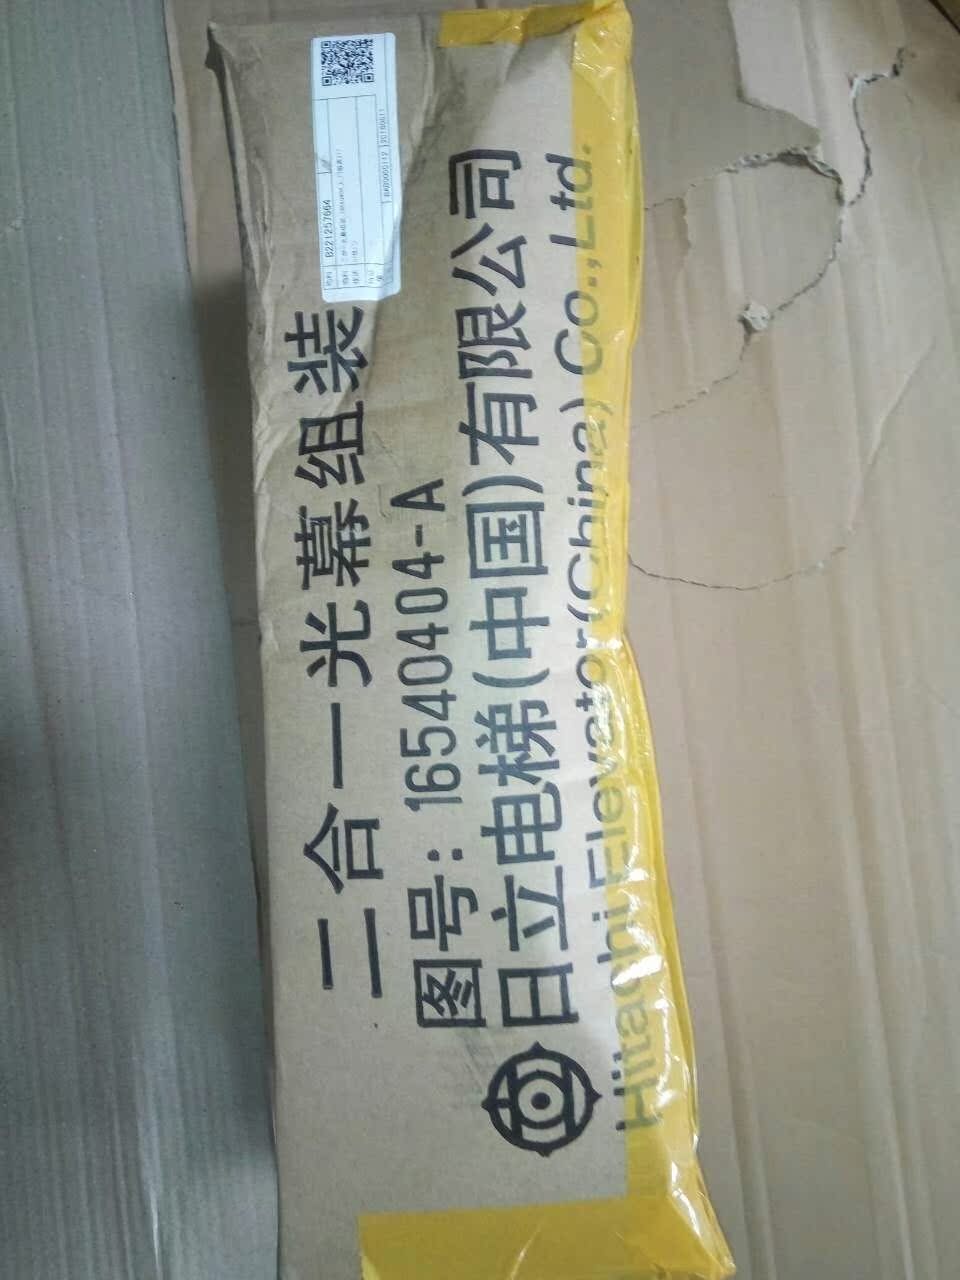 二合一光幕组装
图号:16540404-A
日立电梯(中国)有限公司
Hitachi Elevator(China) Co.,Ltd.
B221257664